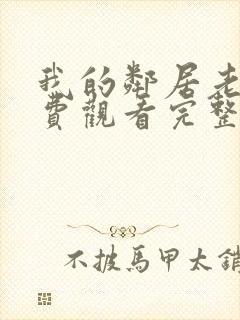 我的鄰居老
費觀看完整
不披馬甲太銷